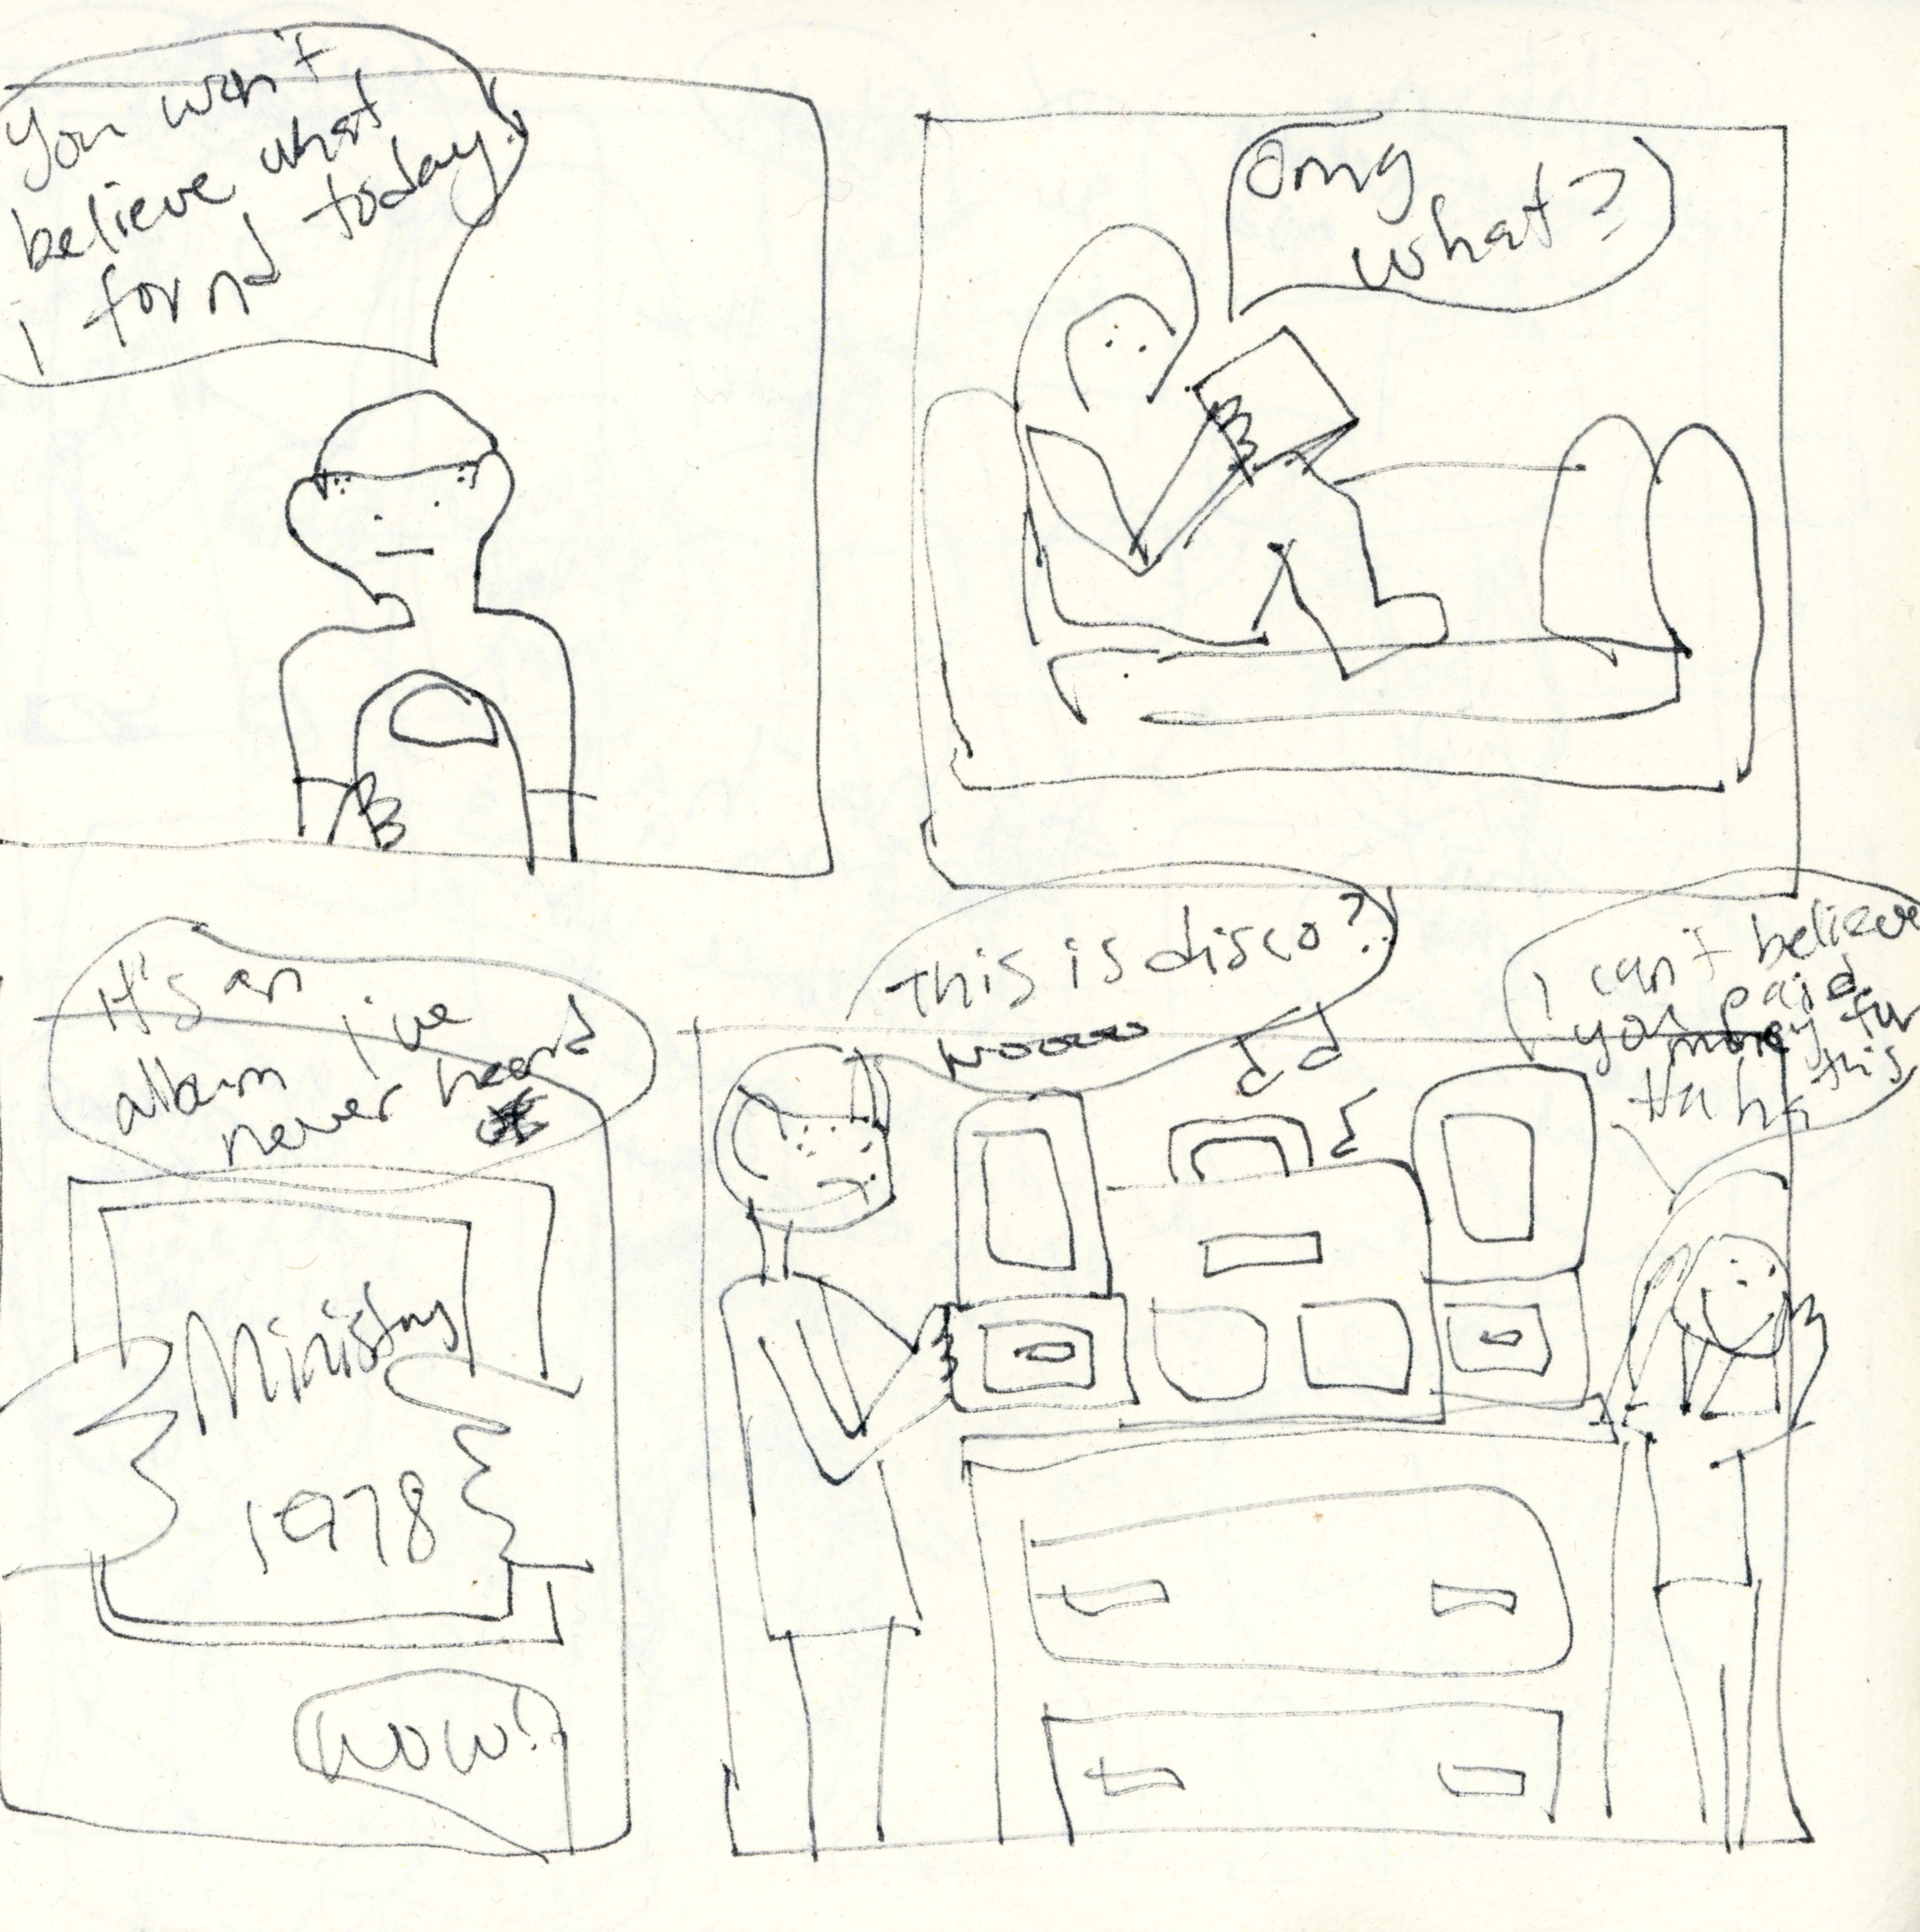 You won't
believe what
i found today.
Omg
what?
It's an
album i've
never heard
Ministry
1978
wow!
This is disco?!
Noooo
I can't believe
you paid
money for
this
Ha ha